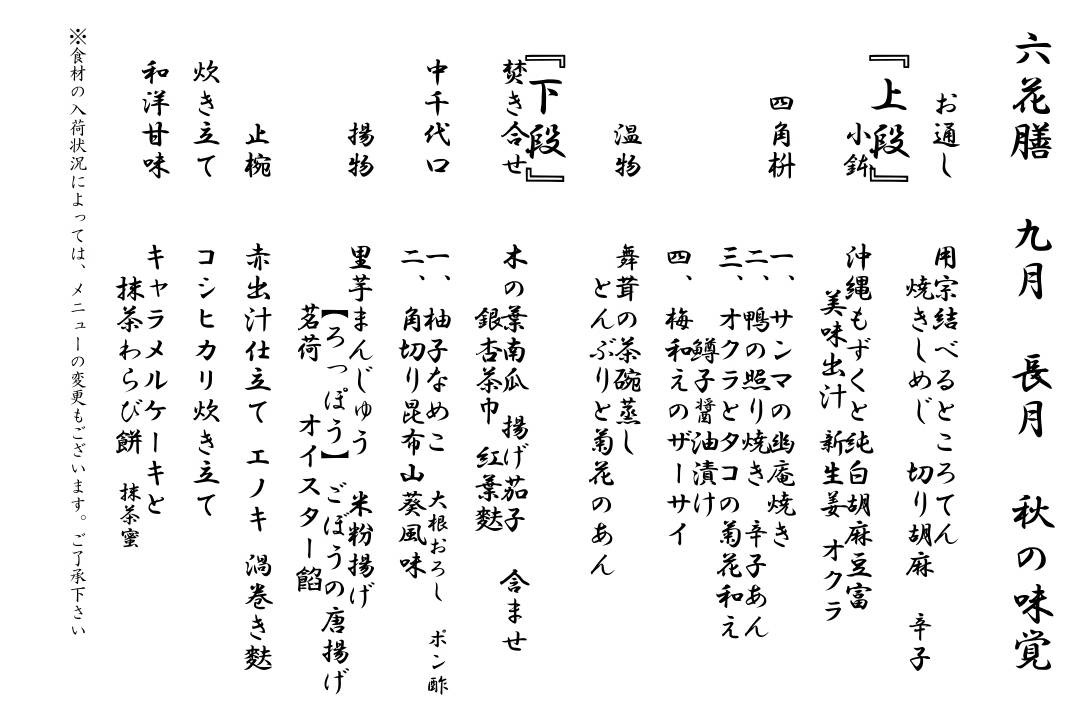 六花膳　九月　長月　秋の味覚
お通し　用宗結べるところてん
焼きしめじ　切り胡麻　辛子
『上段』
小鉢　沖縄もずくと純白胡麻豆富
美味出汁　新生姜　オクラ
四角枡　一、サンマの幽庵焼き
二、鴨の照り焼き　辛子あん
三、オクラとタコの菊花和え
鱒子醤油漬け
四、梅和えのザーサイ
温物　舞茸の茶碗蒸し
とんぶりと菊花のあん
『下段』
焚き合せ　木の葉南瓜　揚げ茄子　含ませ
銀杏茶巾　紅葉麩
中千代口　一、柚子なめこ　大根おろし　ポン酢
二、角切り昆布山葵風味
揚物　里芋まんじゅう　米粉揚げ
【ろっぽう】　ごぼうの唐揚げ
茗荷　オイスター餡
止椀　赤出汁仕立て　エノキ　渦巻き麩
炊き立て　コシヒカリ炊き立て
和洋甘味　キャラメルケーキと
抹茶わらび餅　抹茶蜜
※食材の入荷状況によっては、メニューの変更もございます。ご了承下さい